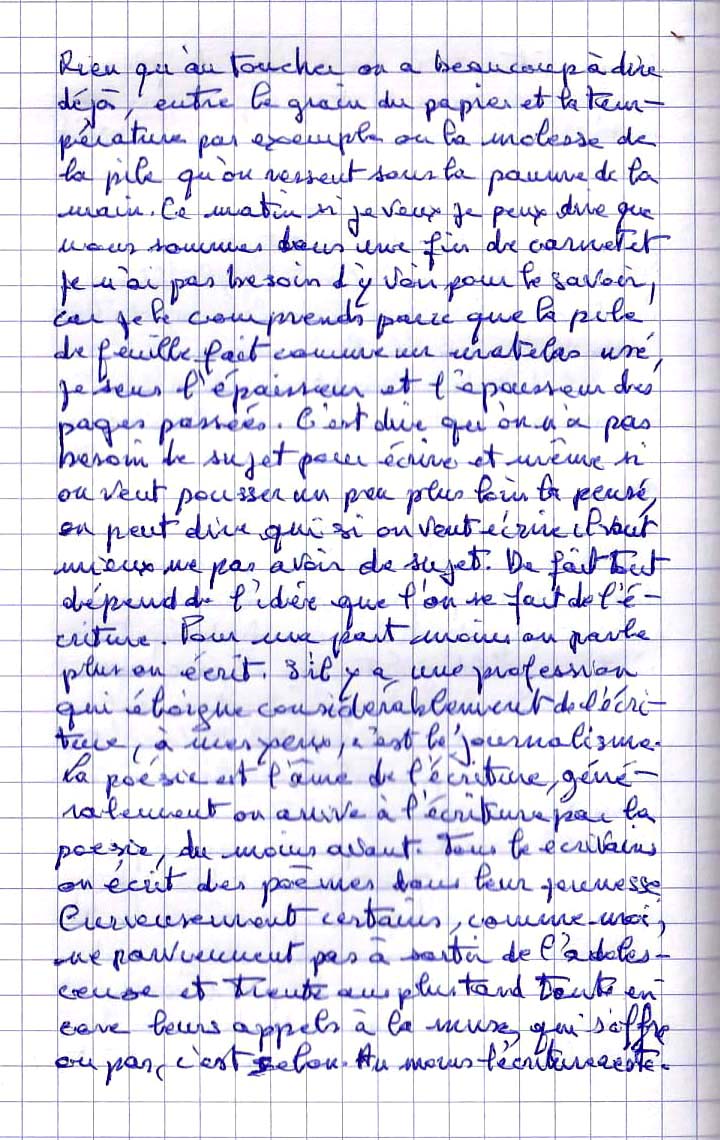 Rien qu'au toucher on a beaucoup à dire
déjà, entre le grain du papier et la tem-
pérature par exemple ou la molesse de
la pile qu'on ressent sous la paume de la
main. Ce matin si je veux je peux dire que
nous sommes dans une fin de carnet et
je n'ai pas besoin d'y voir pour le savoir,
car je le comprends parce que la pile
de feuille fait comme un matelas usé,
je sens l'épaisseur et l'épaisseur des
pages passées. C'est dire qu'on n'a pas
besoin de sujet pour écrire et même si
on veut pousser un peu plus loin la pensé,
on peut dire qui si on veut écrire il vaut
mieux ne pas avoir de sujet. De fait tout
dépend de l'idée que l'on se fait de l'é-
criture. Pour ma part moins on parle
plus on écrit. S'il y a une profession
qui éloigne considérablement de l'écri-
ture, à mes yeux, c'est le journalisme.
La poésie est l'âme de l'écriture, géné-
ralement on arrive à l'écriture par la
poésie, du moins avant. Tous le écrivains
on écrit des poèmes dans leur jeunesse
Curieusement certains, comme moi,
ne parviennent pas à sortir de l'adoles-
cence et trente ans plus tard en-
core leurs appels à la muse, qui s'offre
ou pas, c'est selon. Au moins l'écriture reste.